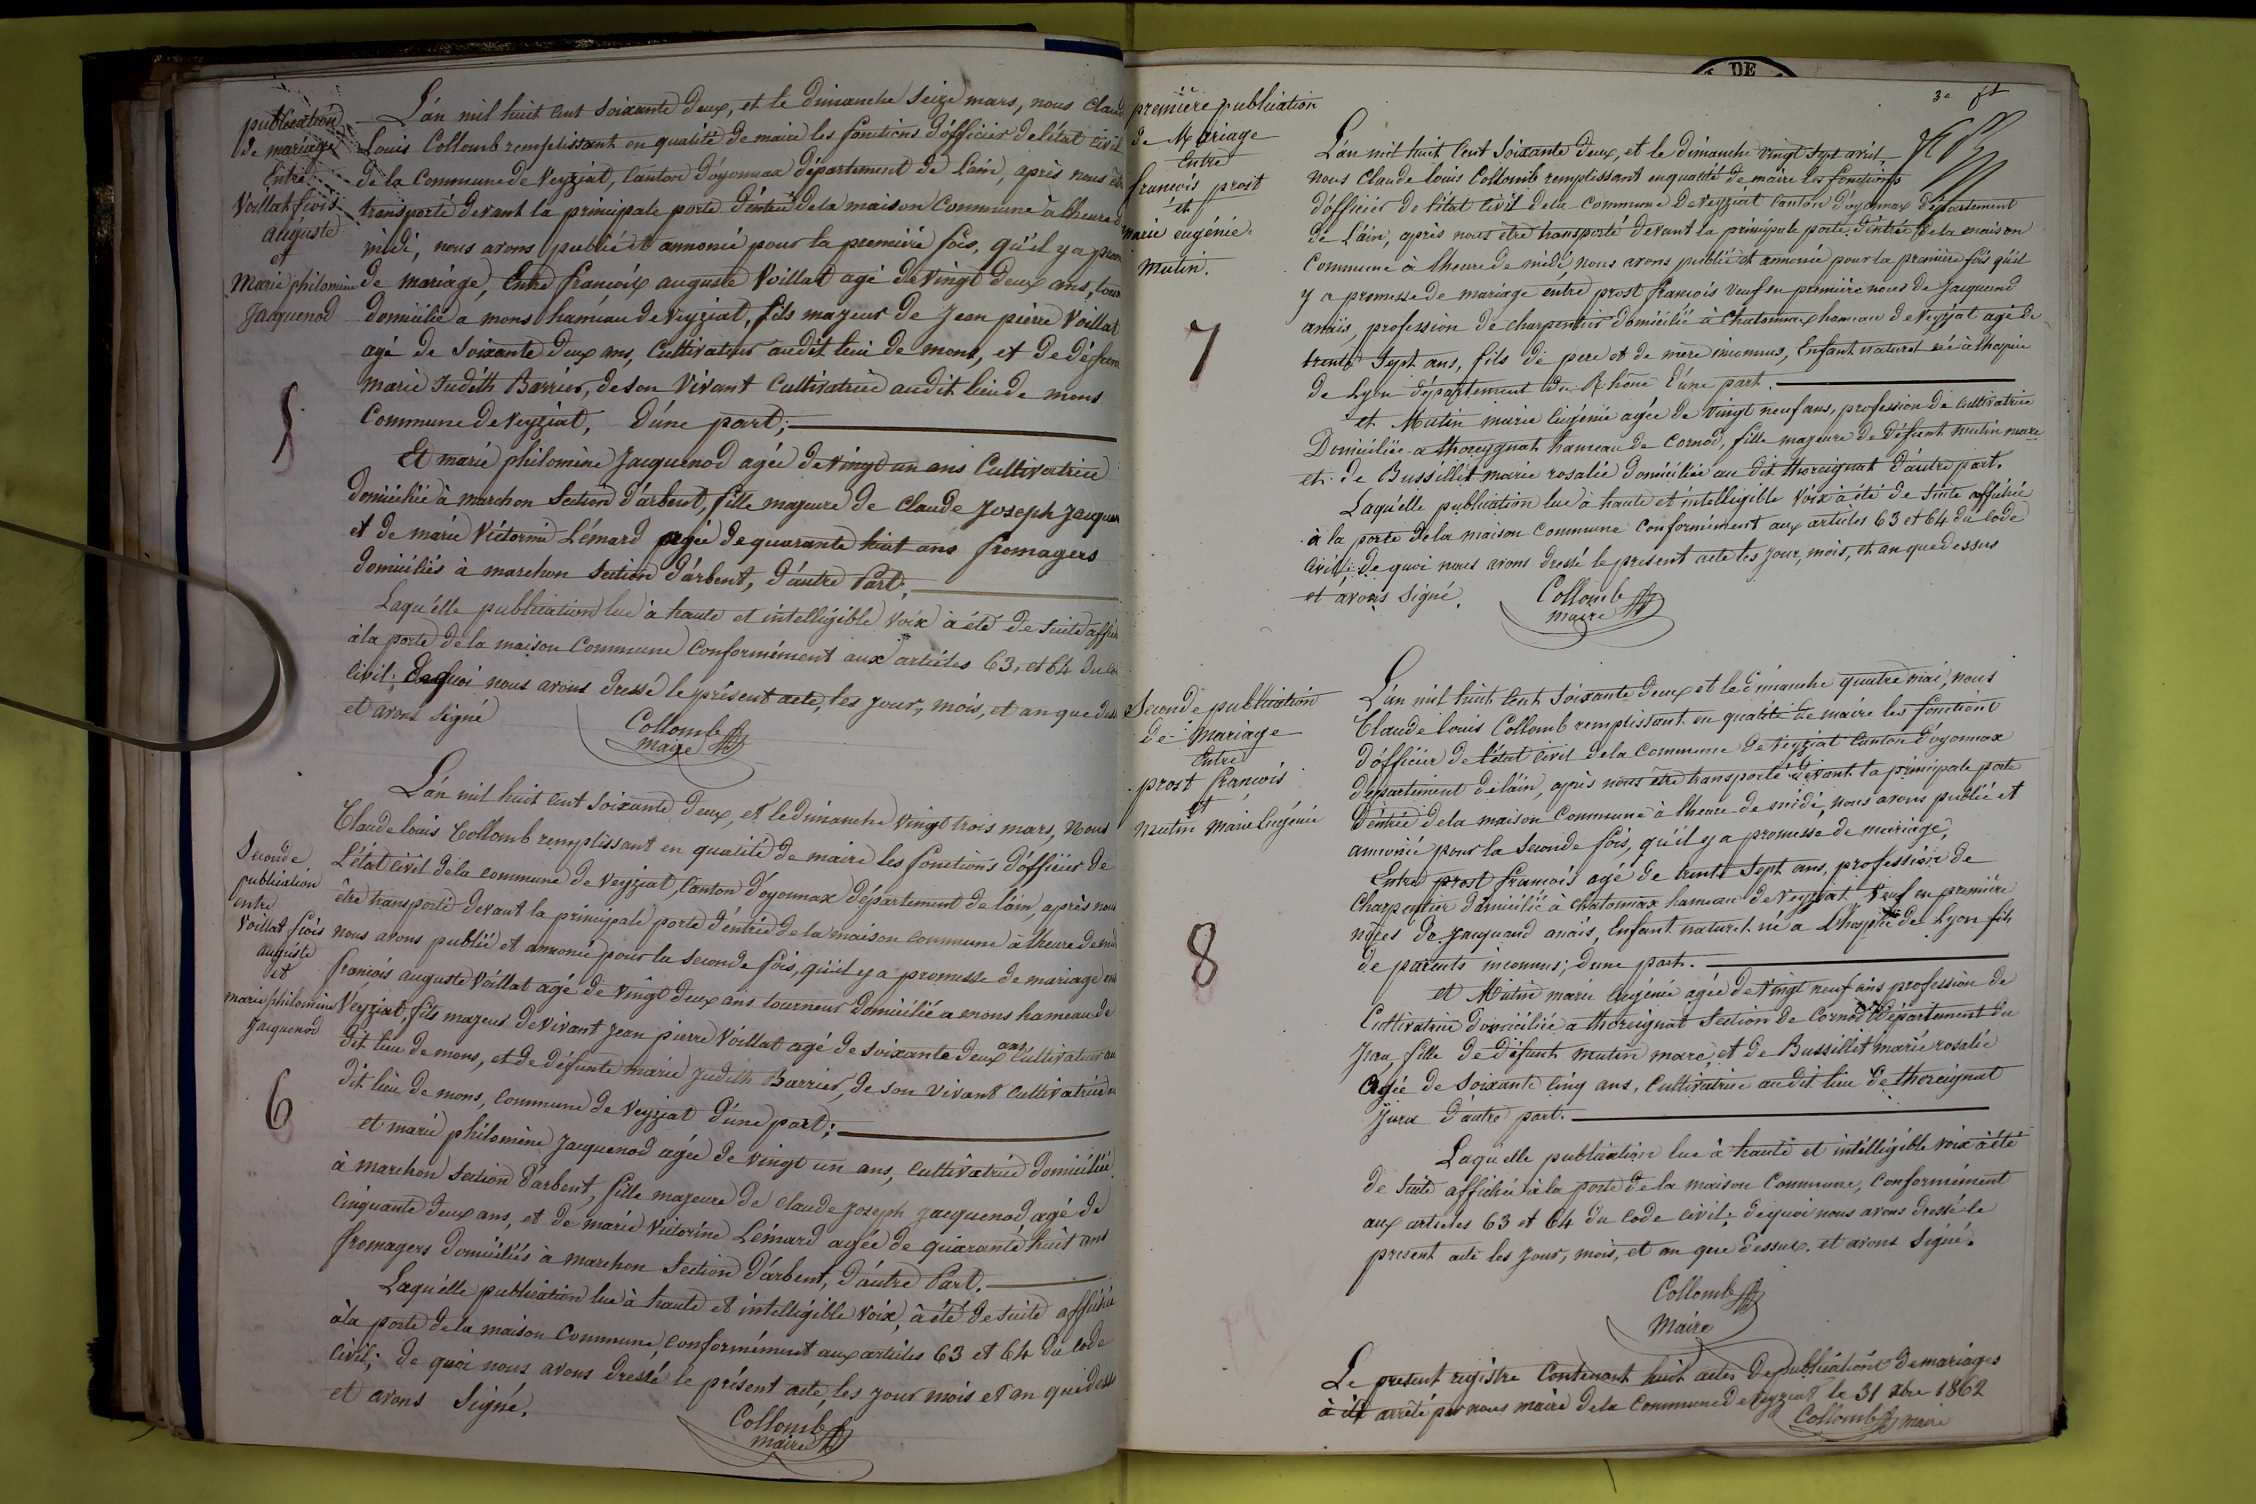 publication
de mariage
Entre
Voillat f.cois
auguste
et
Marie philomine
Jacquenod
5
L'an mil huit cent soixante deux, et le dimanche seize mars, nous Claude
Louis Collomb remplissant en qualité de maire les fonctions d'officier de l'état civil
de la Commune de Veyziat, Canton d'oyonnax département de l'ain, après nous être
transporté devant la principale porte d'entrée de la maison Commune a l'heure de
midi, nous avons publié et annoncé pour la première fois, qu'il y a prom
de mariage, Entre françois auguste Voillat agé de vingt deux ans, tour
domicilié a mons hameau de Veyziat, fils majeur de Jean pierre Voillat
agé de soixante deux ans, Cultivateur audit lieu de mons, et de défun
marie Judith Barrier, de son vivant Cultivatrice audit lieu de mons
Commune de Veyziat, d'une part;
Et marie philomène Jacquenod agée de vingt un ans Cultivatrice
domiciliée à marchon Section d'arbent, fille majeure de Claude Joseph Jacquen
et de marie Victorine Lémard agée de quarante huit ans fromagers
domiciliés à marchon Section d'arbent, d'autre Part.
Laqu'elle publication lue à haute et intelligible voix a été de suite affich
à la porte de la maison Commune Conformément aux articles 63, et 64 du co
civil; De quoi nous avons dressé le présent acte, les jour, mois, et an que dess
et avons signé
Collomb
maire
Seconde
publication
entre
Voillat f.cois
auguste
et
marie philomine
Jacquenod
6
L'an mil huit cent soixante deux, et le dimanche vingt trois mars, Nous
Claude louis Collomb remplissant en qualité de maire les fonctions d'officier de
L'état civil de la commune de Veyziat, Canton d'oyonnax département de l'ain, après nous
être transporté devant la principale porte d'entrée de la maison commune à l'heure de midi
nous avons publié et annoncé pour la seconde fois, qu'il y a promesse de mariage en
françois auguste Voillat agé de vingt deux ans tourneur domicilié a mons hameau de
Veyziat, fils majeur de vivant Jean pierre Voillat agé de soixante deux ans Cultivateur au
dit lieu de mons, et de défunte marie Judith Barrier, de son vivant Cultivatrice au
dit lieu de mons, Commune de Veyziat d'une part;
et marie philomène Jacquenod agée de vingt un ans, Cultivatrice domiciliée
à marchon Section d'arbent, fille majeure de Claude Joseph Jacquenod agé de
Cinquante deux ans, et de marie Victorine Lémard agée de quarante huit ans
fromagers domiciliés à marchon Section d'arbent, d'autre Part.
Laqu'elle publication lue à haute et intelligible voix, a été de suite affichée
à la porte de la maison Commune, conformément aux articles 63 et 64 du code
civil; de quoi nous avons dressé le présent acte, les jour mois et an que dess
et avons Signé.
Collomb
maire
première publication
de Mariage
Entre
francois prost
et
marie eugénie
Mutin.
7
3e ft
L'an mil huit Cent Soixante deux, et le dimanche vingt sept avril,
nous Claude louis Collomb remplissant en qualité de maire les fonctions
d'officier de l'état Civil de la Commune de Veyziat Canton d'oyonnax département
de L'ain, après nous être transporté devant la principale porte d'entrée de la maison
Commune à l'heure de midi, nous avons publié et annoncé pour la première fois qu'il
y a promesse de mariage entre prost francois veuf en première noces de Jacquand
anaïs, profession de charpentier domicilié à Chatonnax hameau de Veyziat agé de
trente sept ans, fils de pere et de mère inconnus, Enfant naturel né à l'hopice
de Lyon département du Rhône d'une part.
et Mutin marie Eugénie agée de vingt neuf ans, profession de cultivatrice
Domiciliée a thoreygnat hameau de Cornod, fille majeure de défunt mutin marc
et de Bussillet marie rosalie domiciliée au dit thoreignat d'autre part.
Laqu'elle publication lue à haute et intelligible voix a été de suite affichée
à la porte de la maison Commune Conformément aux articles 63 et 64 du Code
civil; De quoi nous avons dressé le present acte les jour, mois, et an que dessus
et avons Signé.
Collomb
maire
Seconde publication
de mariage
Entre
prost francois
et
Mutin Marie Eugénie
8
L'an mil huit Cent Soixante deux et le dimanche quatre mai, nous
Claude louis Collomb remplissant en qualité de maire les fonctions
d'officier de l'état civil de la Commune de Veyziat Canton d'oyonnax
département de l'ain, après nous être transporté devant la principale porte
d'entrée de la maison Commune à l'heure de midi, nous avons publié et
annoncé pour la Seconde fois, qu'il y a promesse de mariage,
Entre prost francois agé de trente sept ans, profession de
Charpentier domicilié à Chatonnax hameau de Veyziat veuf en première
noces de Jacquand anaïs, Enfant naturel né a l'hospice de Lyon fils
de parents inconnus; d'une part.
et Mutin marie Eugénie agée de vingt neuf ans profession de
Cultivatrice domiciliée a thoreignat Section de Cornod Département du
Jura, fille de défunt mutin marc, et de Bussillet marie rosalie
agée de soixante Cinq ans, Cultivatrice au dit lieu de thoreignat
Jura d'autre part.
Laquelle publication lue à haute et intélligible voix a été
de suite affichée à la porte de la maison Commune, Conformément
aux articles 63 et 64 du Code civil; de quoi nous avons dressé le
present acte les jour, mois, et an que dessus. et avons Signé.
Collomb
Maire
Le present régistre Contenant huit actes de publications de mariages
à été arrêté par nous maire de la Commune de Veyziat le 31 xbre 1862
Collomb maire
DE